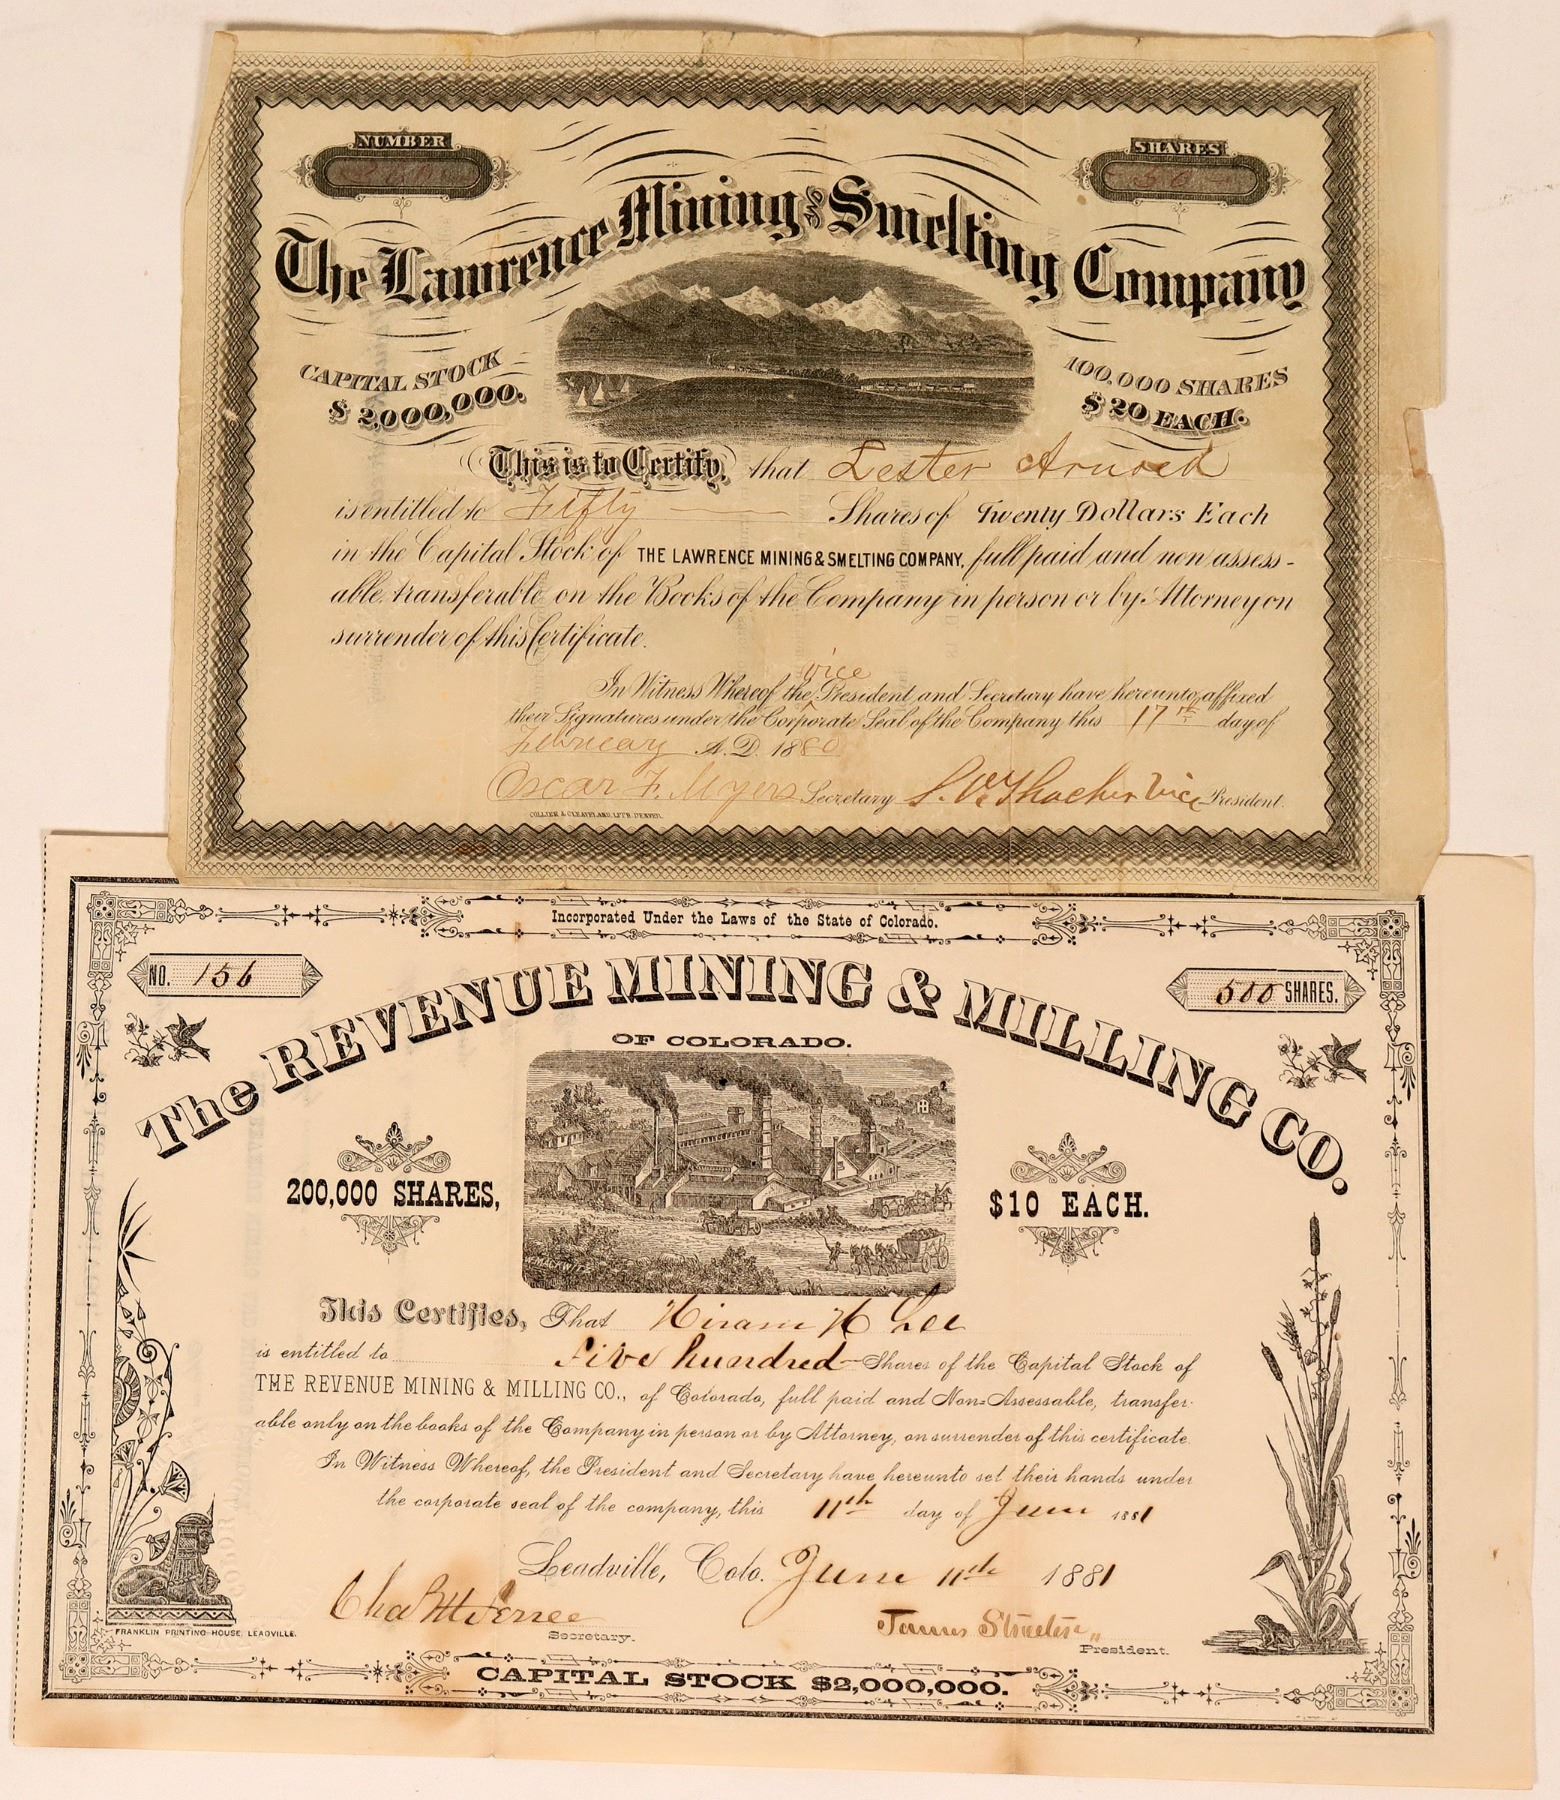 NUMBER
SHARES
50
The Lawrence Mining AND Smelting Company
CAPITAL STOCK
$ 2,000,000.
100,000 SHARES
$ 20 EACH.
This is to Certify, that Lester Arnold
is entitled to Fifty Shares of Twenty Dollars Each
in the Capital Stock of THE LAWRENCE MINING & SMELTING COMPANY, full paid and non assess-
able, transferable on the Books of the Company in person or by Attorney on
surrender of this Certificate.
vice
In Witness Whereof the President and Secretary have hereunto affixed
their Signatures under the Corporate Seal of the Company this 17th day of
February A.D. 1880
Oscar F. Myers Secretary S. V. Thacher Vice President.
COLLIER & CLEAVELAND, LITH. DENVER.
Incorporated Under the Laws of the State of Colorado.
NO. 156
500 SHARES.
The REVENUE MINING & MILLING CO.
OF COLORADO.
200,000 SHARES,
$10 EACH.
This Certifies, That Hiram H Lee
is entitled to Five hundred Shares of the Capital Stock of
THE REVENUE MINING & MILLING CO., of Colorado, full paid and Non-Assessable, transfer-
able only on the books of the Company in person or by Attorney, on surrender of this certificate.
In Witness Whereof, the President and Secretary have hereunto set their hands under
the corporate seal of the company, this 11th day of June 1881
Leadville, Colo. June 11th 1881
Secretary.
James
President.
FRANKLIN PRINTING HOUSE, LEADVILLE.
CAPITAL STOCK $2,000,000.